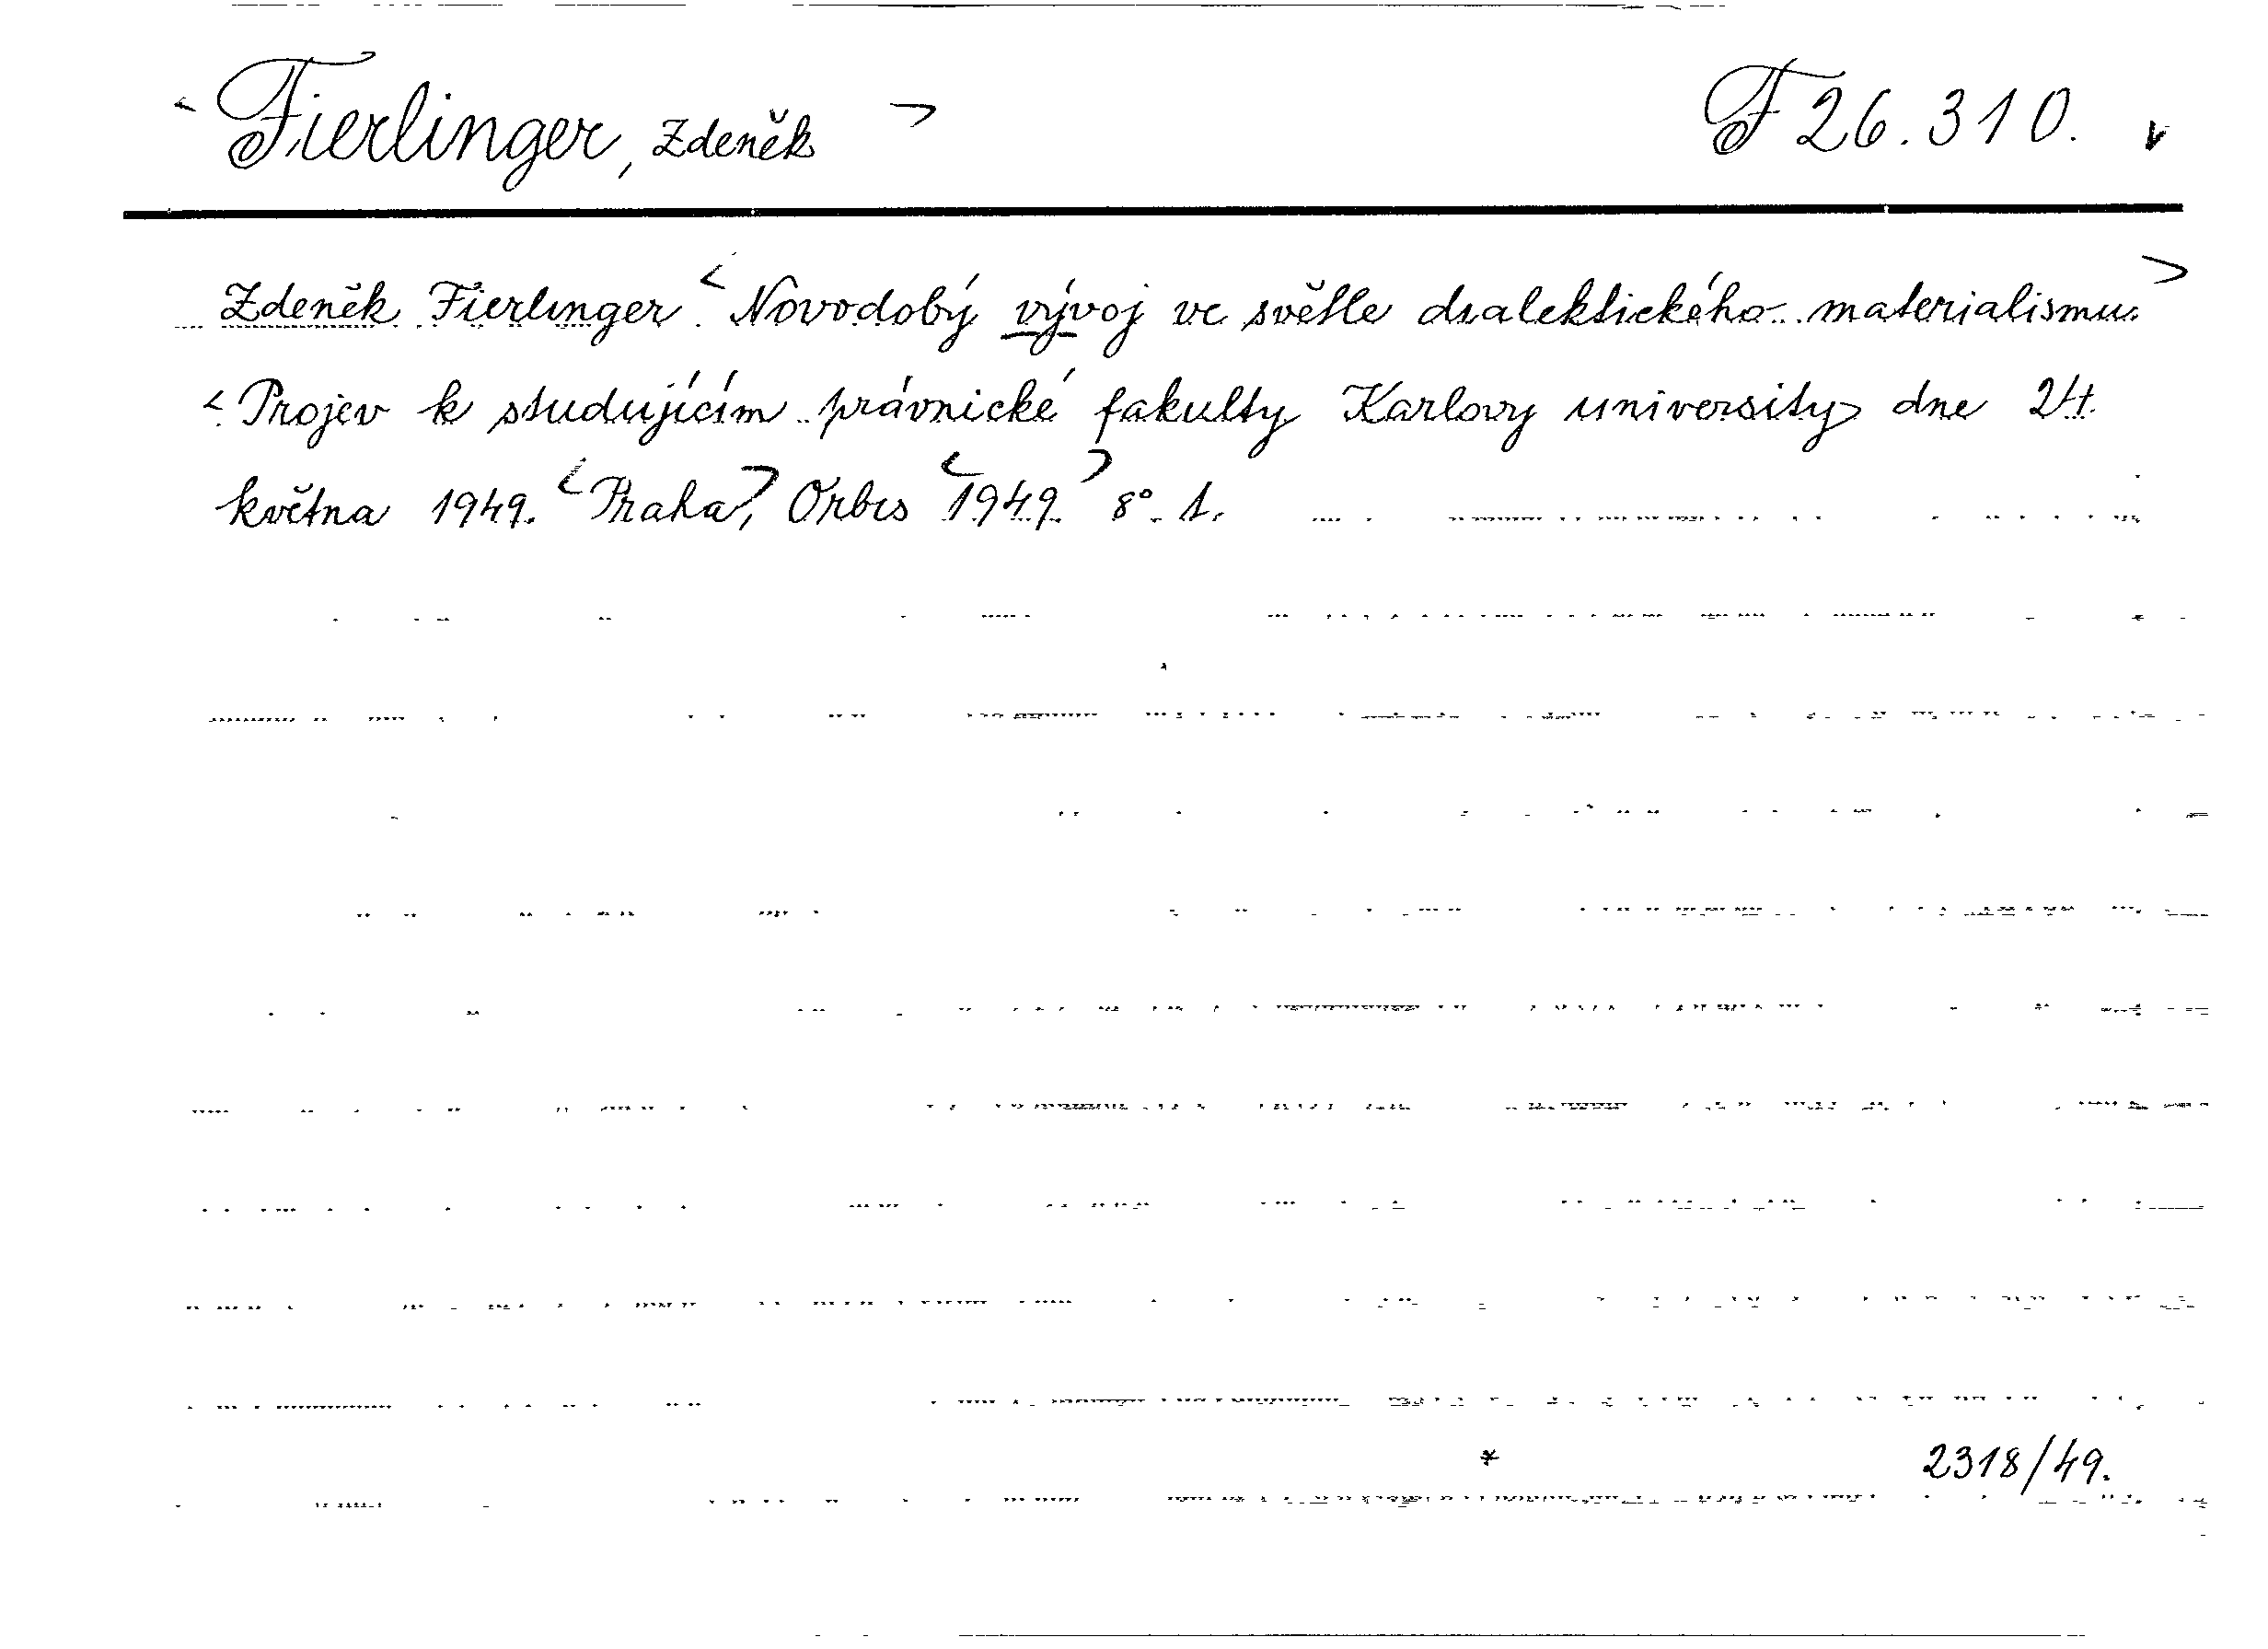 <Fierlinger, Zdeněk> F 26.310. v
Zdeněk Fierlinger <Novodobý vývoj ve světle dialektického materialismu.>
<Projev k studujícím právnické fakulty Karlovy university> dne 24.
května 1949. <Praha>, Orbis <1949> 8°. 1.
* 2318/49.